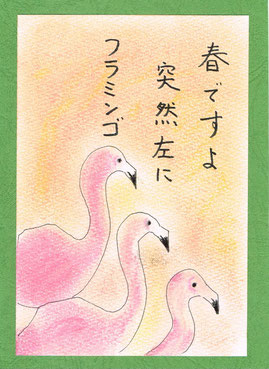 春ですよ
突然左に
フラミンゴ